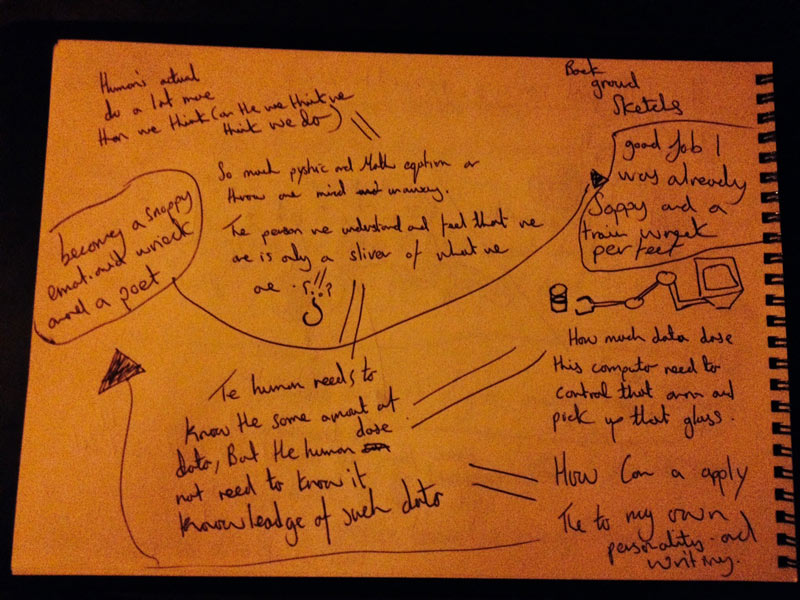 Human's actual
do a lot more
then we think (on the we think we
think we do)
Back
ground
Sketchs
good Job I
was already
Soppy and a
train wreck
perfect
So much and Math eqation or
throw are mind
The person we understand and feel that we
are is only a sliver of what we
are
becomeg a snoppy
emotional wreck
and a poet
How much data dose
this computer need to
control that arm and
pick up that glass.
Te human needs to
know the same amount of
data, But the human dose
not need to know it
knowleadge of such data
How Can a apply
Tie to my own
personality and
writing.